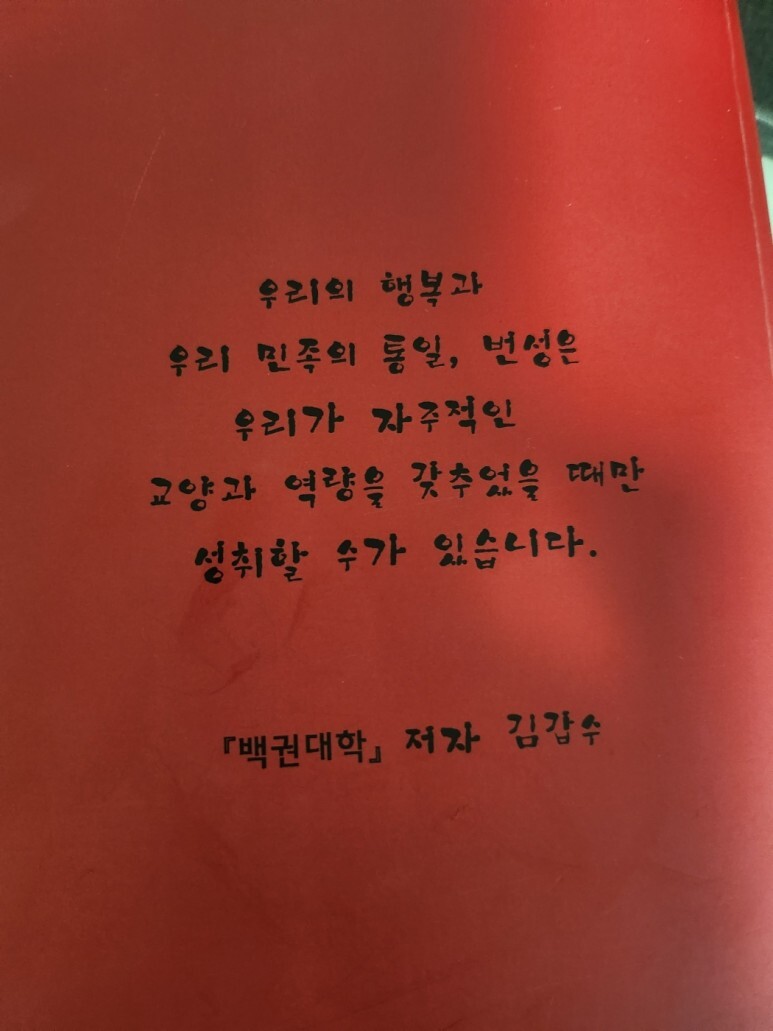 우리의 행복과
우리 민족의 통일, 번성은
우리가 자주적인
교양과 역량을 갖추었을 때만
성취할 수가 있습니다.
『백권대학』 저자 김갑수